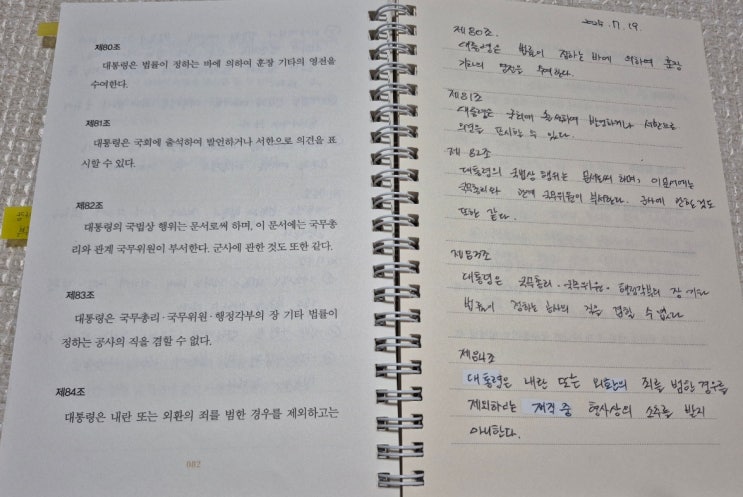 제80조
대통령은 법률이 정하는 바에 의하여 훈장 기타의 영전을
수여한다.
제81조
대통령은 국회에 출석하여 발언하거나 서한으로 의견을 표
시할 수 있다.
제82조
대통령의 국법상 행위는 문서로써 하며, 이 문서에는 국무총
리와 관계 국무위원이 부서한다. 군사에 관한 것도 또한 같다.
제83조
대통령은 국무총리·국무위원·행정각부의 장 기타 법률이
정하는 공사의 직을 겸할 수 없다.
제84조
대통령은 내란 또는 외환의 죄를 범한 경우를 제외하고는
082
제80조.
대통령은 법률이 정하는 바에 의하여 훈장
기타의 영전을 수여한다.
제81조
대통령은 국회에 출석하여 발언하거나 서한으로
의견을 표시할 수 있다.
제82조
대통령의 국법상 행위는 문서로써 하며, 이 문서에는
국무총리와 관계 국무위원이 부서한다. 군사에 관한 것도
또한 같다.
제83조
대통령은 국무총리·국무위원·행정각부의 장 기타
법률이 정하는 공사의 직을 겸할 수 없다
제84조
대통령은 내란 또는 외환의 죄를 범한 경우를
제외하고는 재직 중 형사상의 소추를 받지
아니한다.